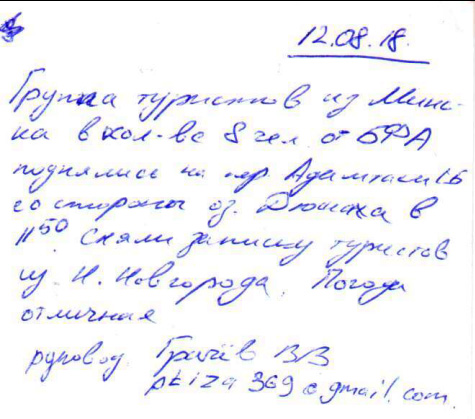 12.08.18.
Группа туристов из Минс-
ка в кол-ве 8 чел. от БФА
поднялись на пер. Адамташ 1Б
со стороны оз. Дюшаха в
11⁵⁰. Сняли записку туристов
из Н. Новгорода. Погода
отличная
руковод. Грачёв В.В
ptiza369@gmail.com.